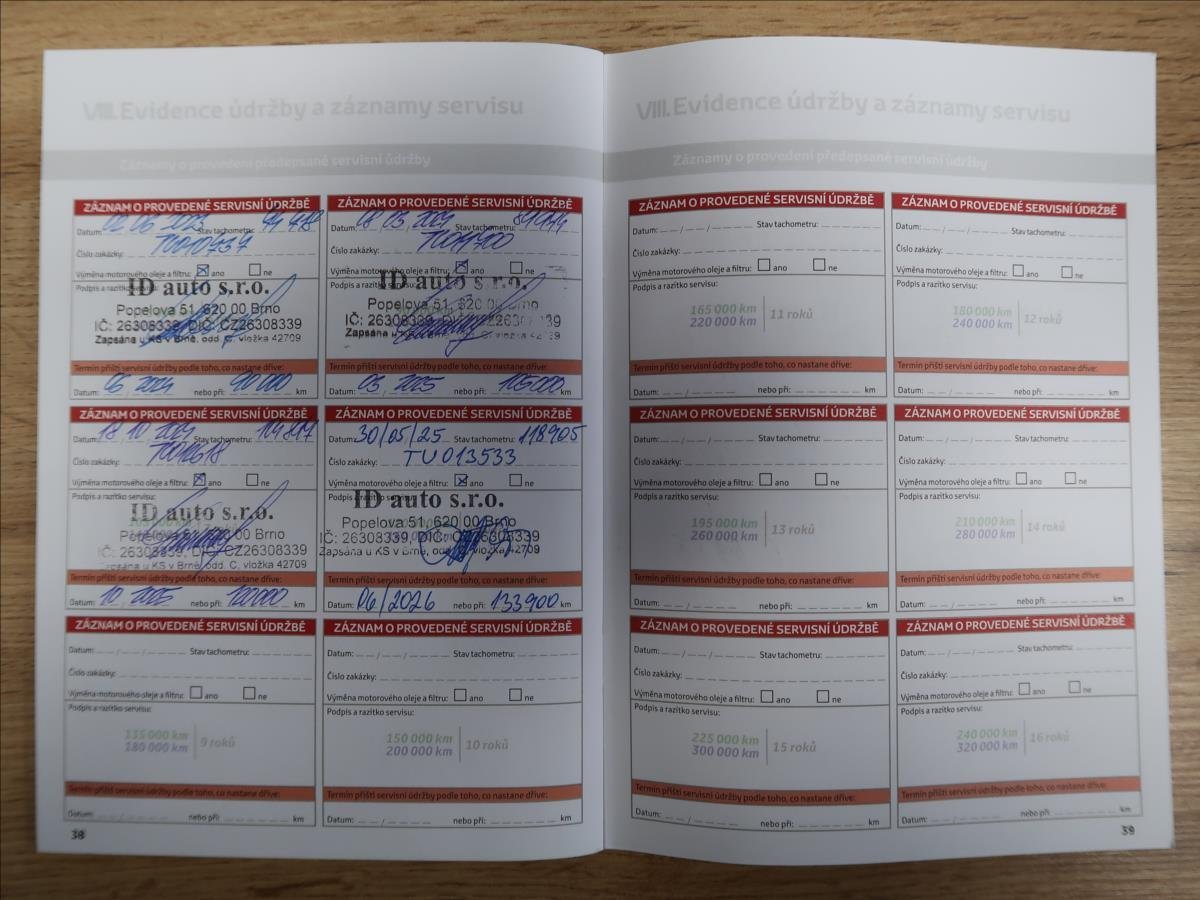 VIII. Evidence údržby a záznamy servisu
Záznamy o provedení předepsané servisní údržby
ZÁZNAM O PROVEDENÉ SERVISNÍ ÚDRŽBĚ
Datum: 2023 Stav tachometru:
Číslo zakázky:
Výměna motorového oleje a filtru: ano ne
Podpis a razítko servisu:
ID auto s.r.o.
Popelova 51, 620 00 Brno
IČ: 26308339, DIČ: CZ26308339
Zapsána u KS v Brně, odd. C, vložka 42709
Termín příští servisní údržby podle toho, co nastane dříve:
Datum: 06 2024 nebo při: 90 000 km
ZÁZNAM O PROVEDENÉ SERVISNÍ ÚDRŽBĚ
Datum: 2024 Stav tachometru:
Číslo zakázky:
Výměna motorového oleje a filtru: ano ne
Podpis a razítko servisu:
ID auto s.r.o.
Popelova 51, 620 00 Brno
IČ: 26308339, DIČ: CZ26308339
Zapsána u KS v Brně, odd. C, vložka 42709
Termín příští servisní údržby podle toho, co nastane dříve:
Datum: 03 2025 nebo při: 105000 km
ZÁZNAM O PROVEDENÉ SERVISNÍ ÚDRŽBĚ
Datum: 18 10 2024 Stav tachometru:
Číslo zakázky: TU012618
Výměna motorového oleje a filtru: ano ne
Podpis a razítko servisu:
ID auto s.r.o.
Popelova 51, 620 00 Brno
IČ: 26308339, DIČ: CZ26308339
Zapsána u KS v Brně, odd. C, vložka 42709
Termín příští servisní údržby podle toho, co nastane dříve:
Datum: 10 2025 nebo při: 120000 km
ZÁZNAM O PROVEDENÉ SERVISNÍ ÚDRŽBĚ
Datum: 30/05/25 Stav tachometru: 118905
Číslo zakázky: TU013533
Výměna motorového oleje a filtru: ano ne
Podpis a razítko servisu:
ID auto s.r.o.
Popelova 51, 620 00 Brno
IČ: 26308339, DIČ: CZ26308339
Zapsána u KS v Brně, odd. C, vložka 42709
Termín příští servisní údržby podle toho, co nastane dříve:
Datum: 06/2026 nebo při: 133900 km
ZÁZNAM O PROVEDENÉ SERVISNÍ ÚDRŽBĚ
Datum: / / Stav tachometru:
Číslo zakázky:
Výměna motorového oleje a filtru: ano ne
Podpis a razítko servisu:
135 000 km
180 000 km 9 roků
Termín příští servisní údržby podle toho, co nastane dříve:
Datum: nebo při: km
ZÁZNAM O PROVEDENÉ SERVISNÍ ÚDRŽBĚ
Datum: / / Stav tachometru:
Číslo zakázky:
Výměna motorového oleje a filtru: ano ne
Podpis a razítko servisu:
150 000 km
200 000 km 10 roků
Termín příští servisní údržby podle toho, co nastane dříve:
Datum: nebo při: km
38
VIII. Evidence údržby a záznamy servisu
Záznamy o provedení předepsané servisní údržby
ZÁZNAM O PROVEDENÉ SERVISNÍ ÚDRŽBĚ
Datum: / / Stav tachometru:
Číslo zakázky:
Výměna motorového oleje a filtru: ano ne
Podpis a razítko servisu:
165 000 km
220 000 km 11 roků
Termín příští servisní údržby podle toho, co nastane dříve:
Datum: nebo při: km
ZÁZNAM O PROVEDENÉ SERVISNÍ ÚDRŽBĚ
Datum: / / Stav tachometru:
Číslo zakázky:
Výměna motorového oleje a filtru: ano ne
Podpis a razítko servisu:
180 000 km
240 000 km 12 roků
Termín příští servisní údržby podle toho, co nastane dříve:
Datum: nebo při: km
ZÁZNAM O PROVEDENÉ SERVISNÍ ÚDRŽBĚ
Datum: / / Stav tachometru:
Číslo zakázky:
Výměna motorového oleje a filtru: ano ne
Podpis a razítko servisu:
195 000 km
260 000 km 13 roků
Termín příští servisní údržby podle toho, co nastane dříve:
Datum: nebo při: km
ZÁZNAM O PROVEDENÉ SERVISNÍ ÚDRŽBĚ
Datum: / / Stav tachometru:
Číslo zakázky:
Výměna motorového oleje a filtru: ano ne
Podpis a razítko servisu:
210 000 km
280 000 km 14 roků
Termín příští servisní údržby podle toho, co nastane dříve:
Datum: nebo při: km
ZÁZNAM O PROVEDENÉ SERVISNÍ ÚDRŽBĚ
Datum: / / Stav tachometru:
Číslo zakázky:
Výměna motorového oleje a filtru: ano ne
Podpis a razítko servisu:
225 000 km
300 000 km 15 roků
Termín příští servisní údržby podle toho, co nastane dříve:
Datum: nebo při: km
ZÁZNAM O PROVEDENÉ SERVISNÍ ÚDRŽBĚ
Datum: / / Stav tachometru:
Číslo zakázky:
Výměna motorového oleje a filtru: ano ne
Podpis a razítko servisu:
240 000 km
320 000 km 16 roků
Termín příští servisní údržby podle toho, co nastane dříve:
Datum: nebo při: km
39